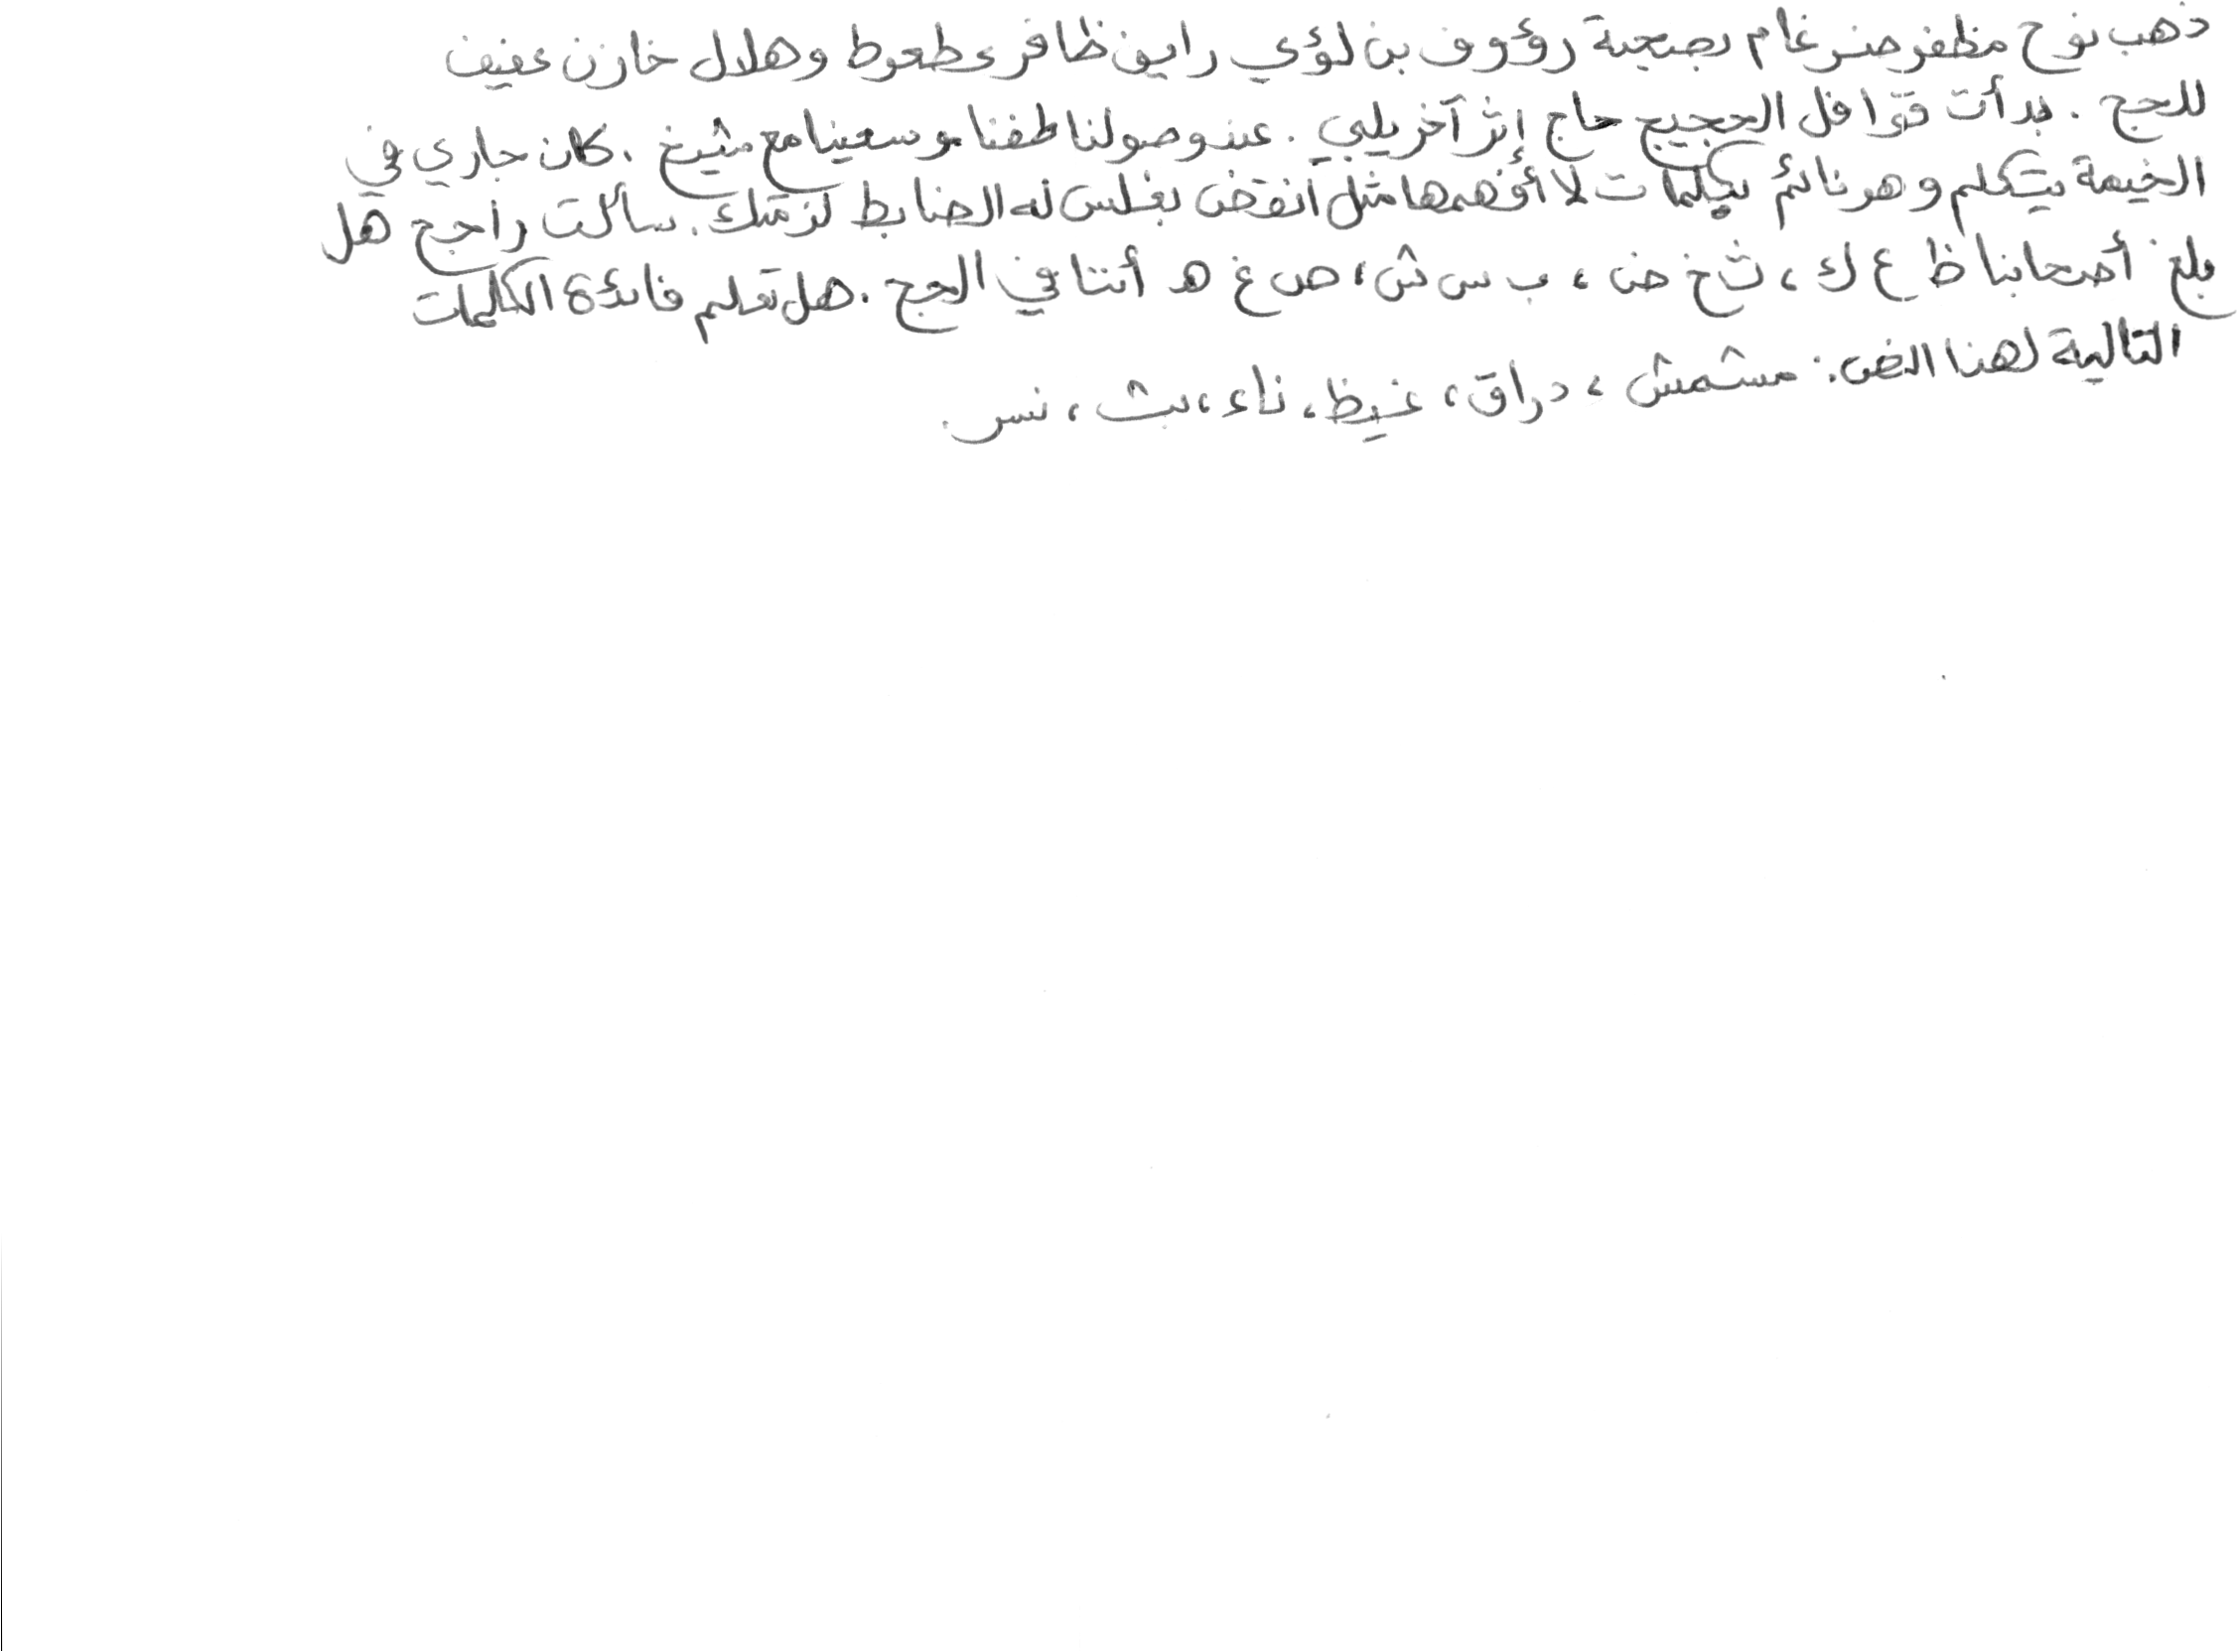 ذهب نوح مظفر ضرغام بصحبة رؤوف بن لؤي رايق ظافر عطعوط وهلال خازن عفيف
للحج . بدأت قوافل الحجيج حاج اثر آخر يلبي . عند وصولنا طفنا وسعينا مع شيخ . كان جاري في
الخيمة يتكلم وهو نائم بكلمات لا أفهمها مثل انقض بغلس له الضابط لزمتك . سألت راجح هل
بلغ أصحابنا ظ ع ك ، ث خ ض ، ب س ش ، ص غ ه أننا في الحج . هل تعلم فائدة الكلمات
التالية لهذا النص : مشمش ، دراق ، غيظ ، ناء ، بث ، نس .